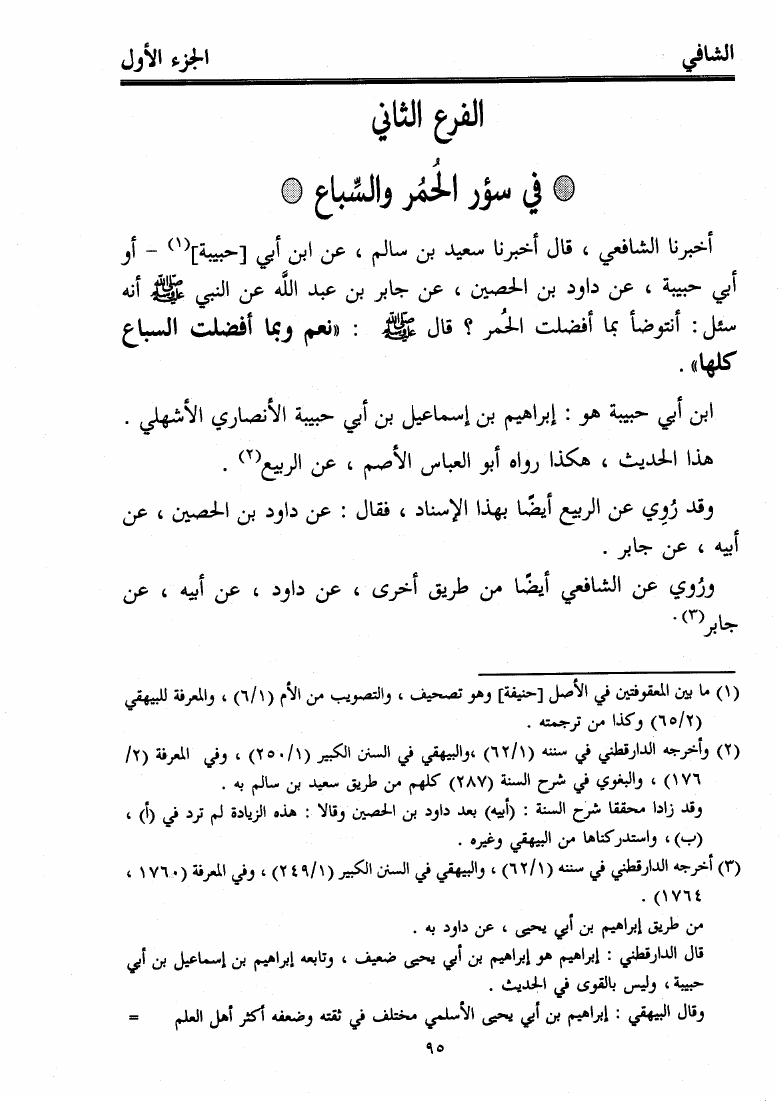 الشافي الجزء الأول
الفرع الثاني
في سؤر الحُمُر والسِّباع
أخبرنا الشافعي ، قال أخبرنا سعيد بن سالم ، عن ابن أبي [حبيبة](١) - أو
أبي حبيبة ، عن داود بن الحصين ، عن جابر بن عبد اللَّه عن النبي ﷺ أنه
سئل : أنتوضأ بما أفضلت الحُمر ؟ قال ﷺ : «نعم وبما أفضلت السباع
كلها» .
ابن أبي حبيبة هو : إبراهيم بن إسماعيل بن أبي حبيبة الأنصاري الأشهلي .
هذا الحديث ، هكذا رواه أبو العباس الأصم ، عن الربيع(٢) .
وقد رُوِي عن الربيع أيضًا بهذا الإسناد ، فقال : عن داود بن الحصين ، عن
أبيه ، عن جابر .
ورُوي عن الشافعي أيضًا من طريق أخرى ، عن داود ، عن أبيه ، عن
جابر(٣).
(١) ما بين المعقوفتين في الأصل [حنيفة] وهو تصحيف ، والتصويب من الأم (٦/١) ، والمعرفة للبيهقي
(٦٥/٢) وكذا من ترجمته .
(٢) وأخرجه الدارقطني في سننه (٦٢/١) ،والبيهقي في السنن الكبير (٢٥٠/١) ، وفي المعرفة (٢/
١٧٦) ، والبغوي في شرح السنة (٢٨٧) كلهم من طريق سعيد بن سالم به .
وقد زادا محققا شرح السنة : (أبيه) بعد داود بن الحصين وقالا : هذه الزيادة لم ترد في (أ) ،
(ب) ، واستدركناها من البيهقي وغيره .
(٣) أخرجه الدارقطني في سننه (٦٢/١) ، والبيهقي في السنن الكبير (٢٤٩/١) ، وفي المعرفة (١٧٦٠ ،
١٧٦٤) .
من طريق إبراهيم بن أبي يحيى ، عن داود به .
قال الدارقطني : إبراهيم هو إبراهيم بن أبي يحيى ضعيف ، وتابعه إبراهيم بن إسماعيل بن أبي
حبيبة ، وليس بالقوى في الحديث .
وقال البيهقي : إبراهيم بن أبي يحيى الأسلمي مختلف في ثقته وضعفه أكثر أهل العلم =
٩٥